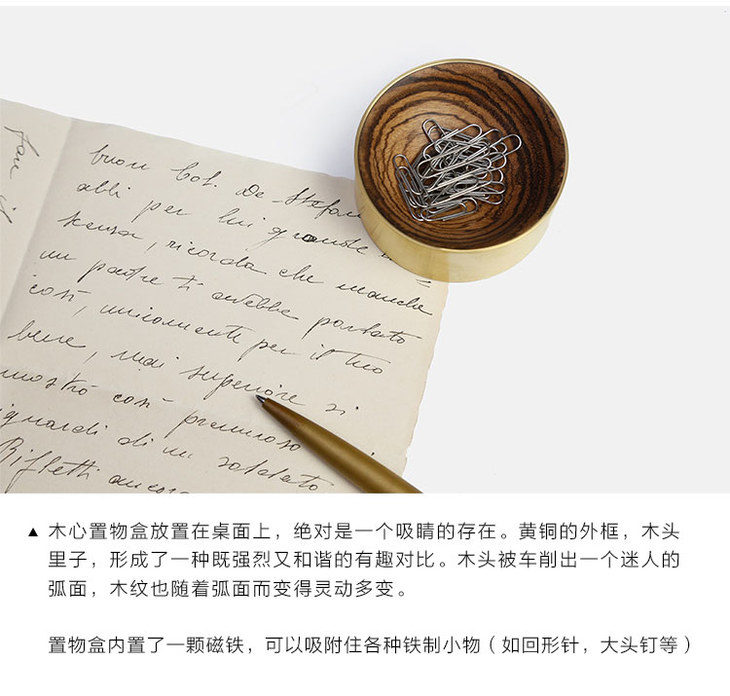 buon Col. De Stefan
abbi per lui grande
senza, ricorda che neanche
un padre ti avrebbe portato
così, unicamente per il tuo
bene, mai superiore si
mostrò così premuroso
guardi di un soldato
Rifletti ancora
▲ 木心置物盒放置在桌面上，绝对是一个吸睛的存在。黄铜的外框，木头
里子，形成了一种既强烈又和谐的有趣对比。木头被车削出一个迷人的
弧面，木纹也随着弧面而变得灵动多变。
置物盒内置了一颗磁铁，可以吸附住各种铁制小物（如回形针，大头钉等）